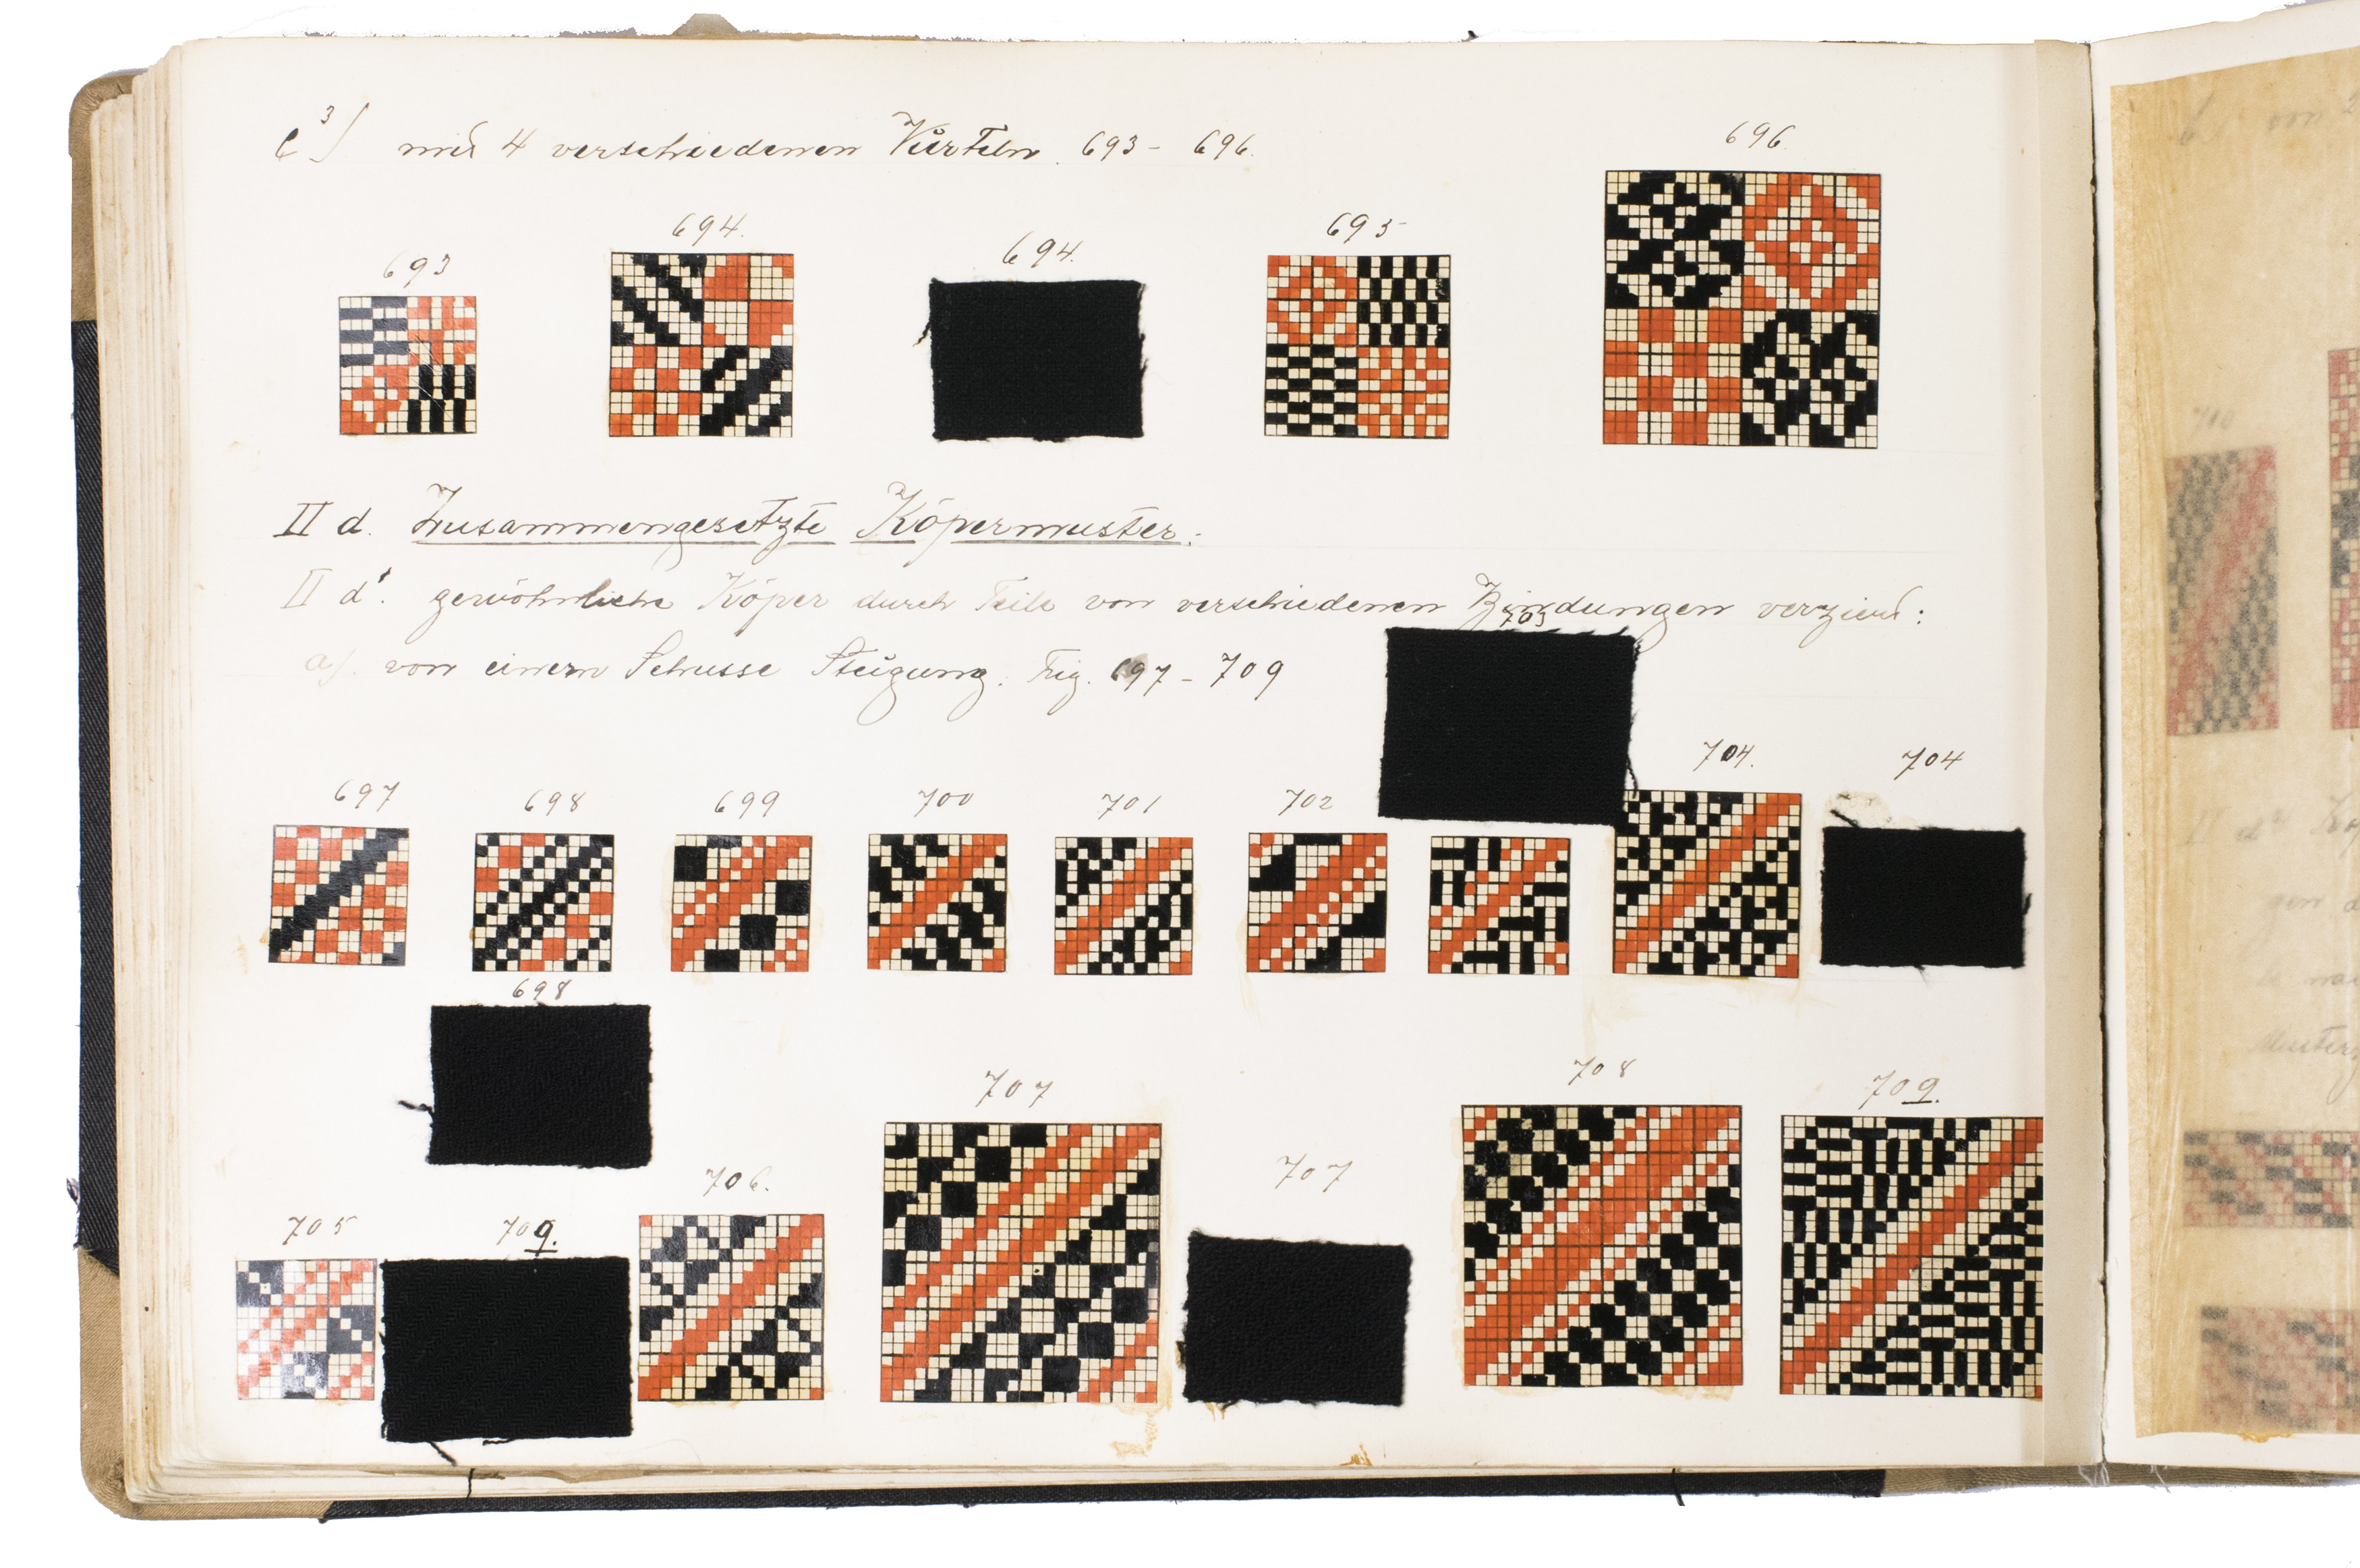 c³) mit 4 verschiedenen Vierteln. 693 - 696.
696
694.
694.
695
693
II d. Zusammengesetzte Köpermuster:
II d¹. gewöhnliche Köper durch Teile von verschiedenen Bindungen verziert:
703
a). von einem Schusse Steigung. Fig. 697 - 709
704.
704
697
698
699
700
701
702
698
707
708
709.
706.
707
705
709.
710